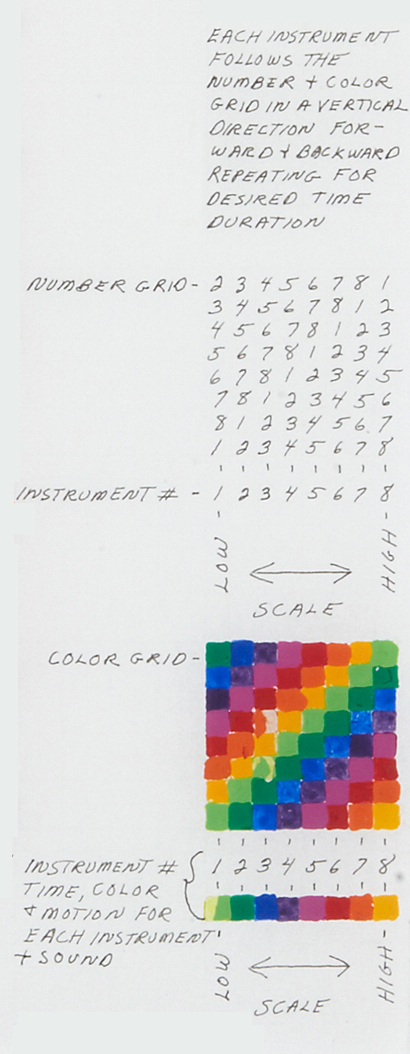 EACH INSTRUMENT
FOLLOWS THE
NUMBER + COLOR
GRID IN A VERTICAL
DIRECTION FOR-
WARD + BACKWARD
REPEATING FOR
DESIRED TIME
DURATION
NUMBER GRID - 2 3 4 5 6 7 8 1
3 4 5 6 7 8 1 2
4 5 6 7 8 1 2 3
5 6 7 8 1 2 3 4
6 7 8 1 2 3 4 5
7 8 1 2 3 4 5 6
8 1 2 3 4 5 6 7
1 2 3 4 5 6 7 8
INSTRUMENT # - 1 2 3 4 5 6 7 8
LOW HIGH
SCALE
COLOR GRID -
INSTRUMENT # 1 2 3 4 5 6 7 8
TIME, COLOR
+ MOTION FOR
EACH INSTRUMENT
+ SOUND
LOW HIGH
SCALE